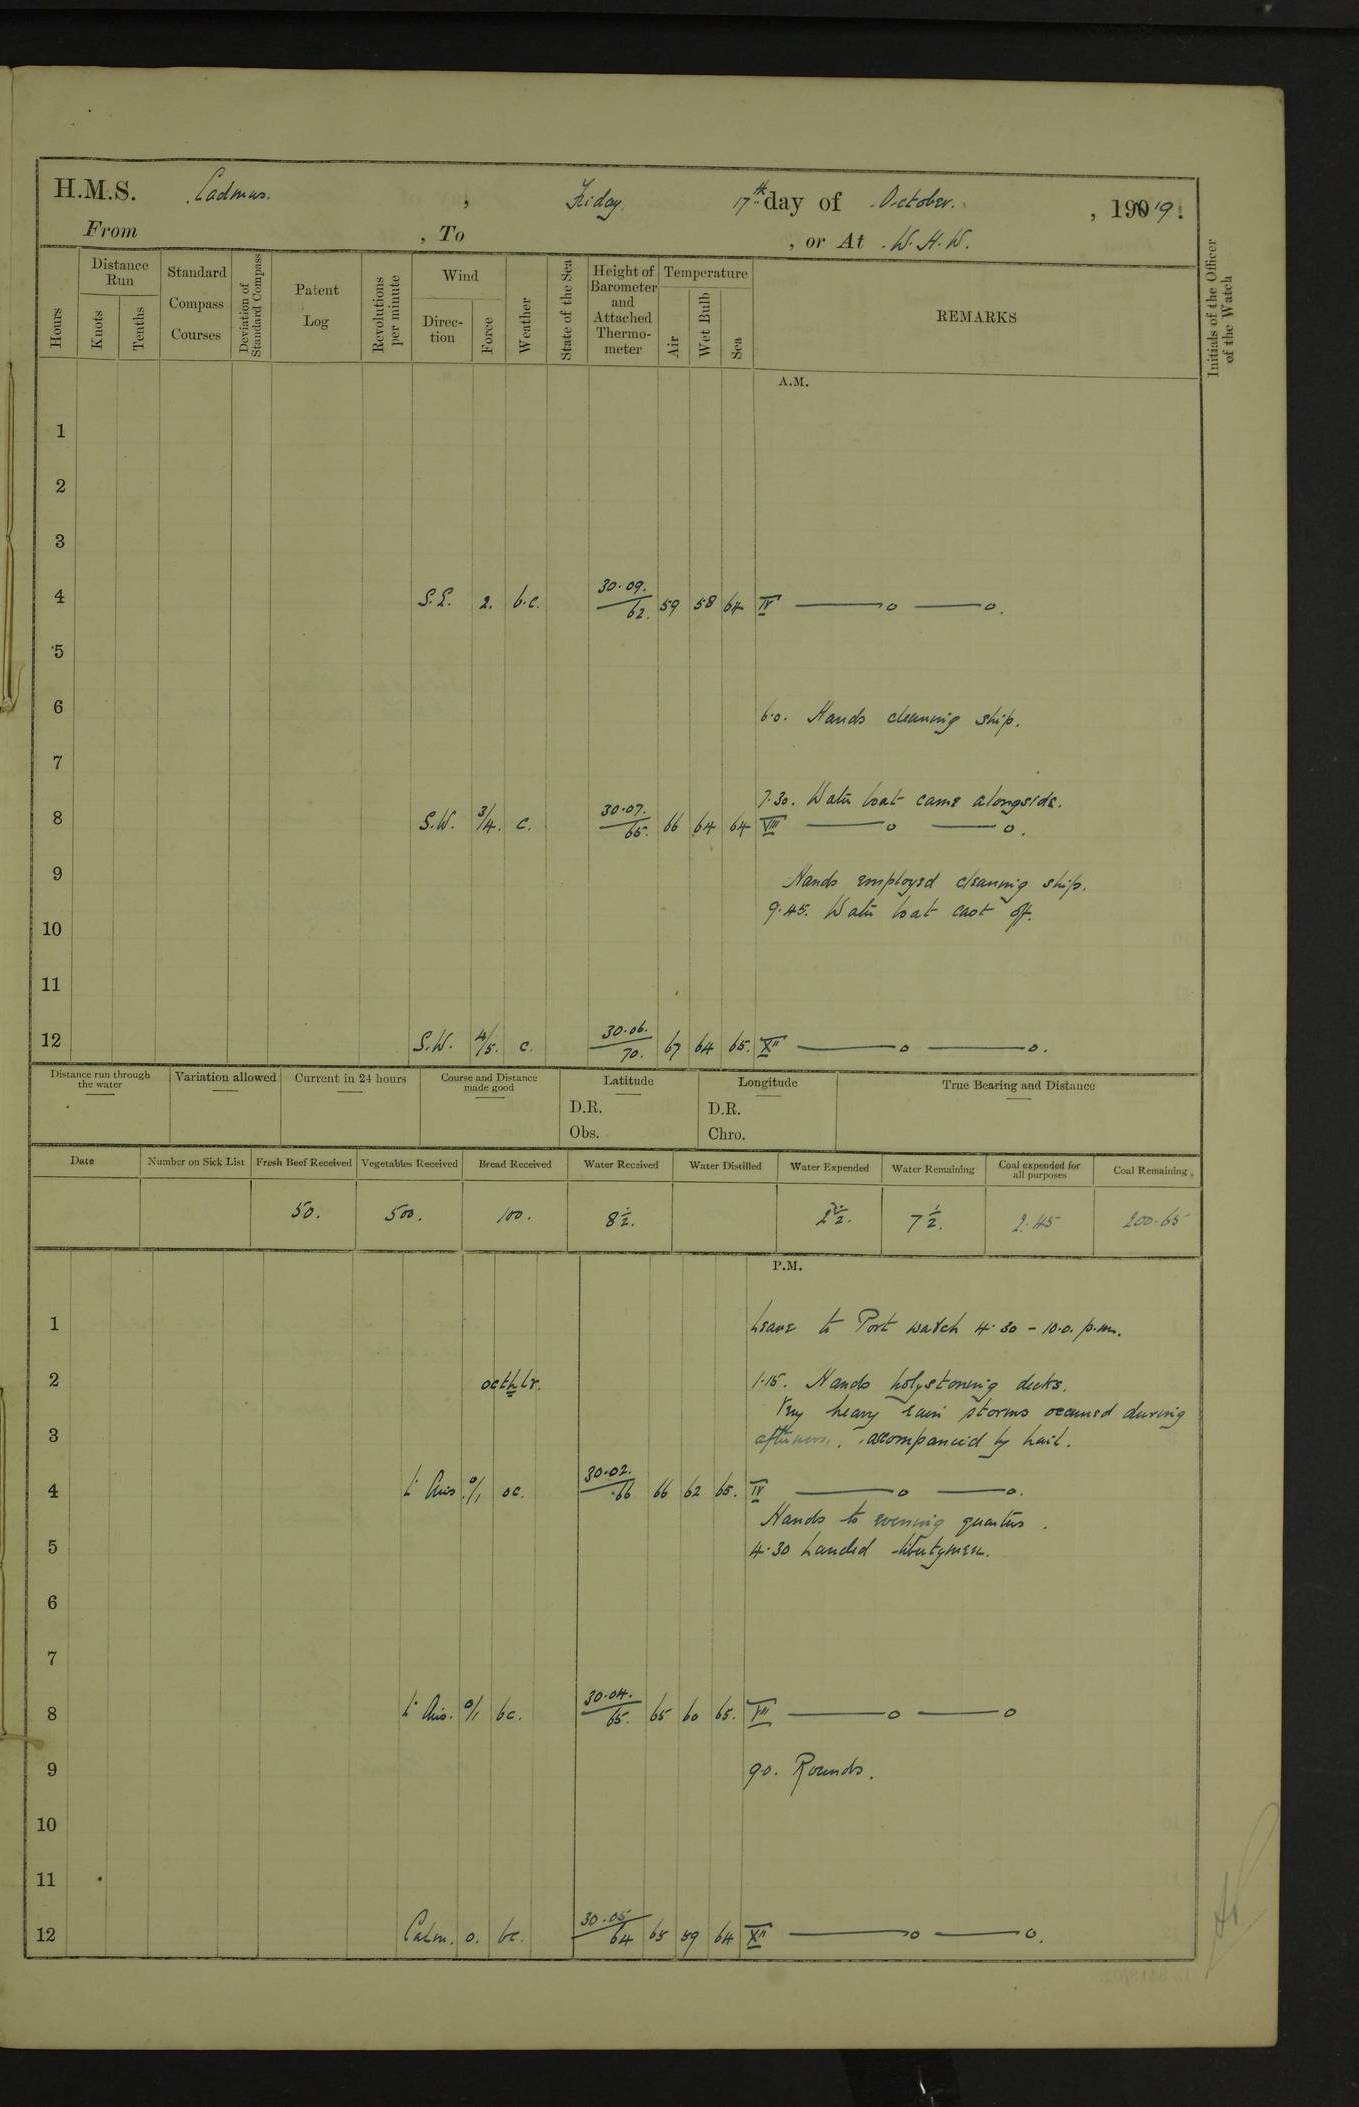 H.M.S. Cadmus. , Friday 17th day of October. , 19019.
From , To , or At W.H.W.
Hours
Distance Run
Knots
Tenths
Standard Compass Courses
Deviation of Standard Compass
Patent Log
Revolutions per minute
Wind
Direction
Force
Weather
State of the Sea
Height of Barometer and Attached Thermometer
Temperature
Air
Wet Bulb
Sea
REMARKS
Initials of the Officer of the Watch
A.M.
1
2
3
4 S.E. 2. b.c. 30.09. 62. 59 58 64 IV
5
6 6.0. Hands cleaning ship.
7
7.30. Water boat came alongside.
8 S.W. 3/4. c. 30.07. 65. 66 64 64 VIII
9 Hands employed cleaning ship.
9.45. Water boat cast off.
10
11
12 S.W. 4/5. c. 30.06. 70. 67 64 65. XII
Distance run through the water
Variation allowed
Current in 24 hours
Course and Distance made good
Latitude
D.R.
Obs.
Longitude
D.R.
Chro.
True Bearing and Distance
Date Number on Sick List Fresh Beef Received Vegetables Received Bread Received Water Received Water Distilled Water Expended Water Remaining Coal expended for all purposes Coal Remaining
50. 500. 100. 8½. 2½. 7½. 2.45 200.65
P.M.
1 Leave to Port watch 4.30 - 10.0. p.m.
2 octhlr. 1.15. Hands holystoning decks.
Very heavy rain storms occurred during
3 afternoon, accompanied by hail.
4 Lt Airs 0/1 oc. 30.02. 66 66 62 65. IV
Hands to evening quarters.
5 4.30 Landed libertymen.
6
7
8 Lt Airs. 0/1 bc. 30.04. 65. 65 60 65. VIII
9 9.0. Rounds.
10
11
12 Calm. 0. bc. 30.05 64 65 59 64 XII